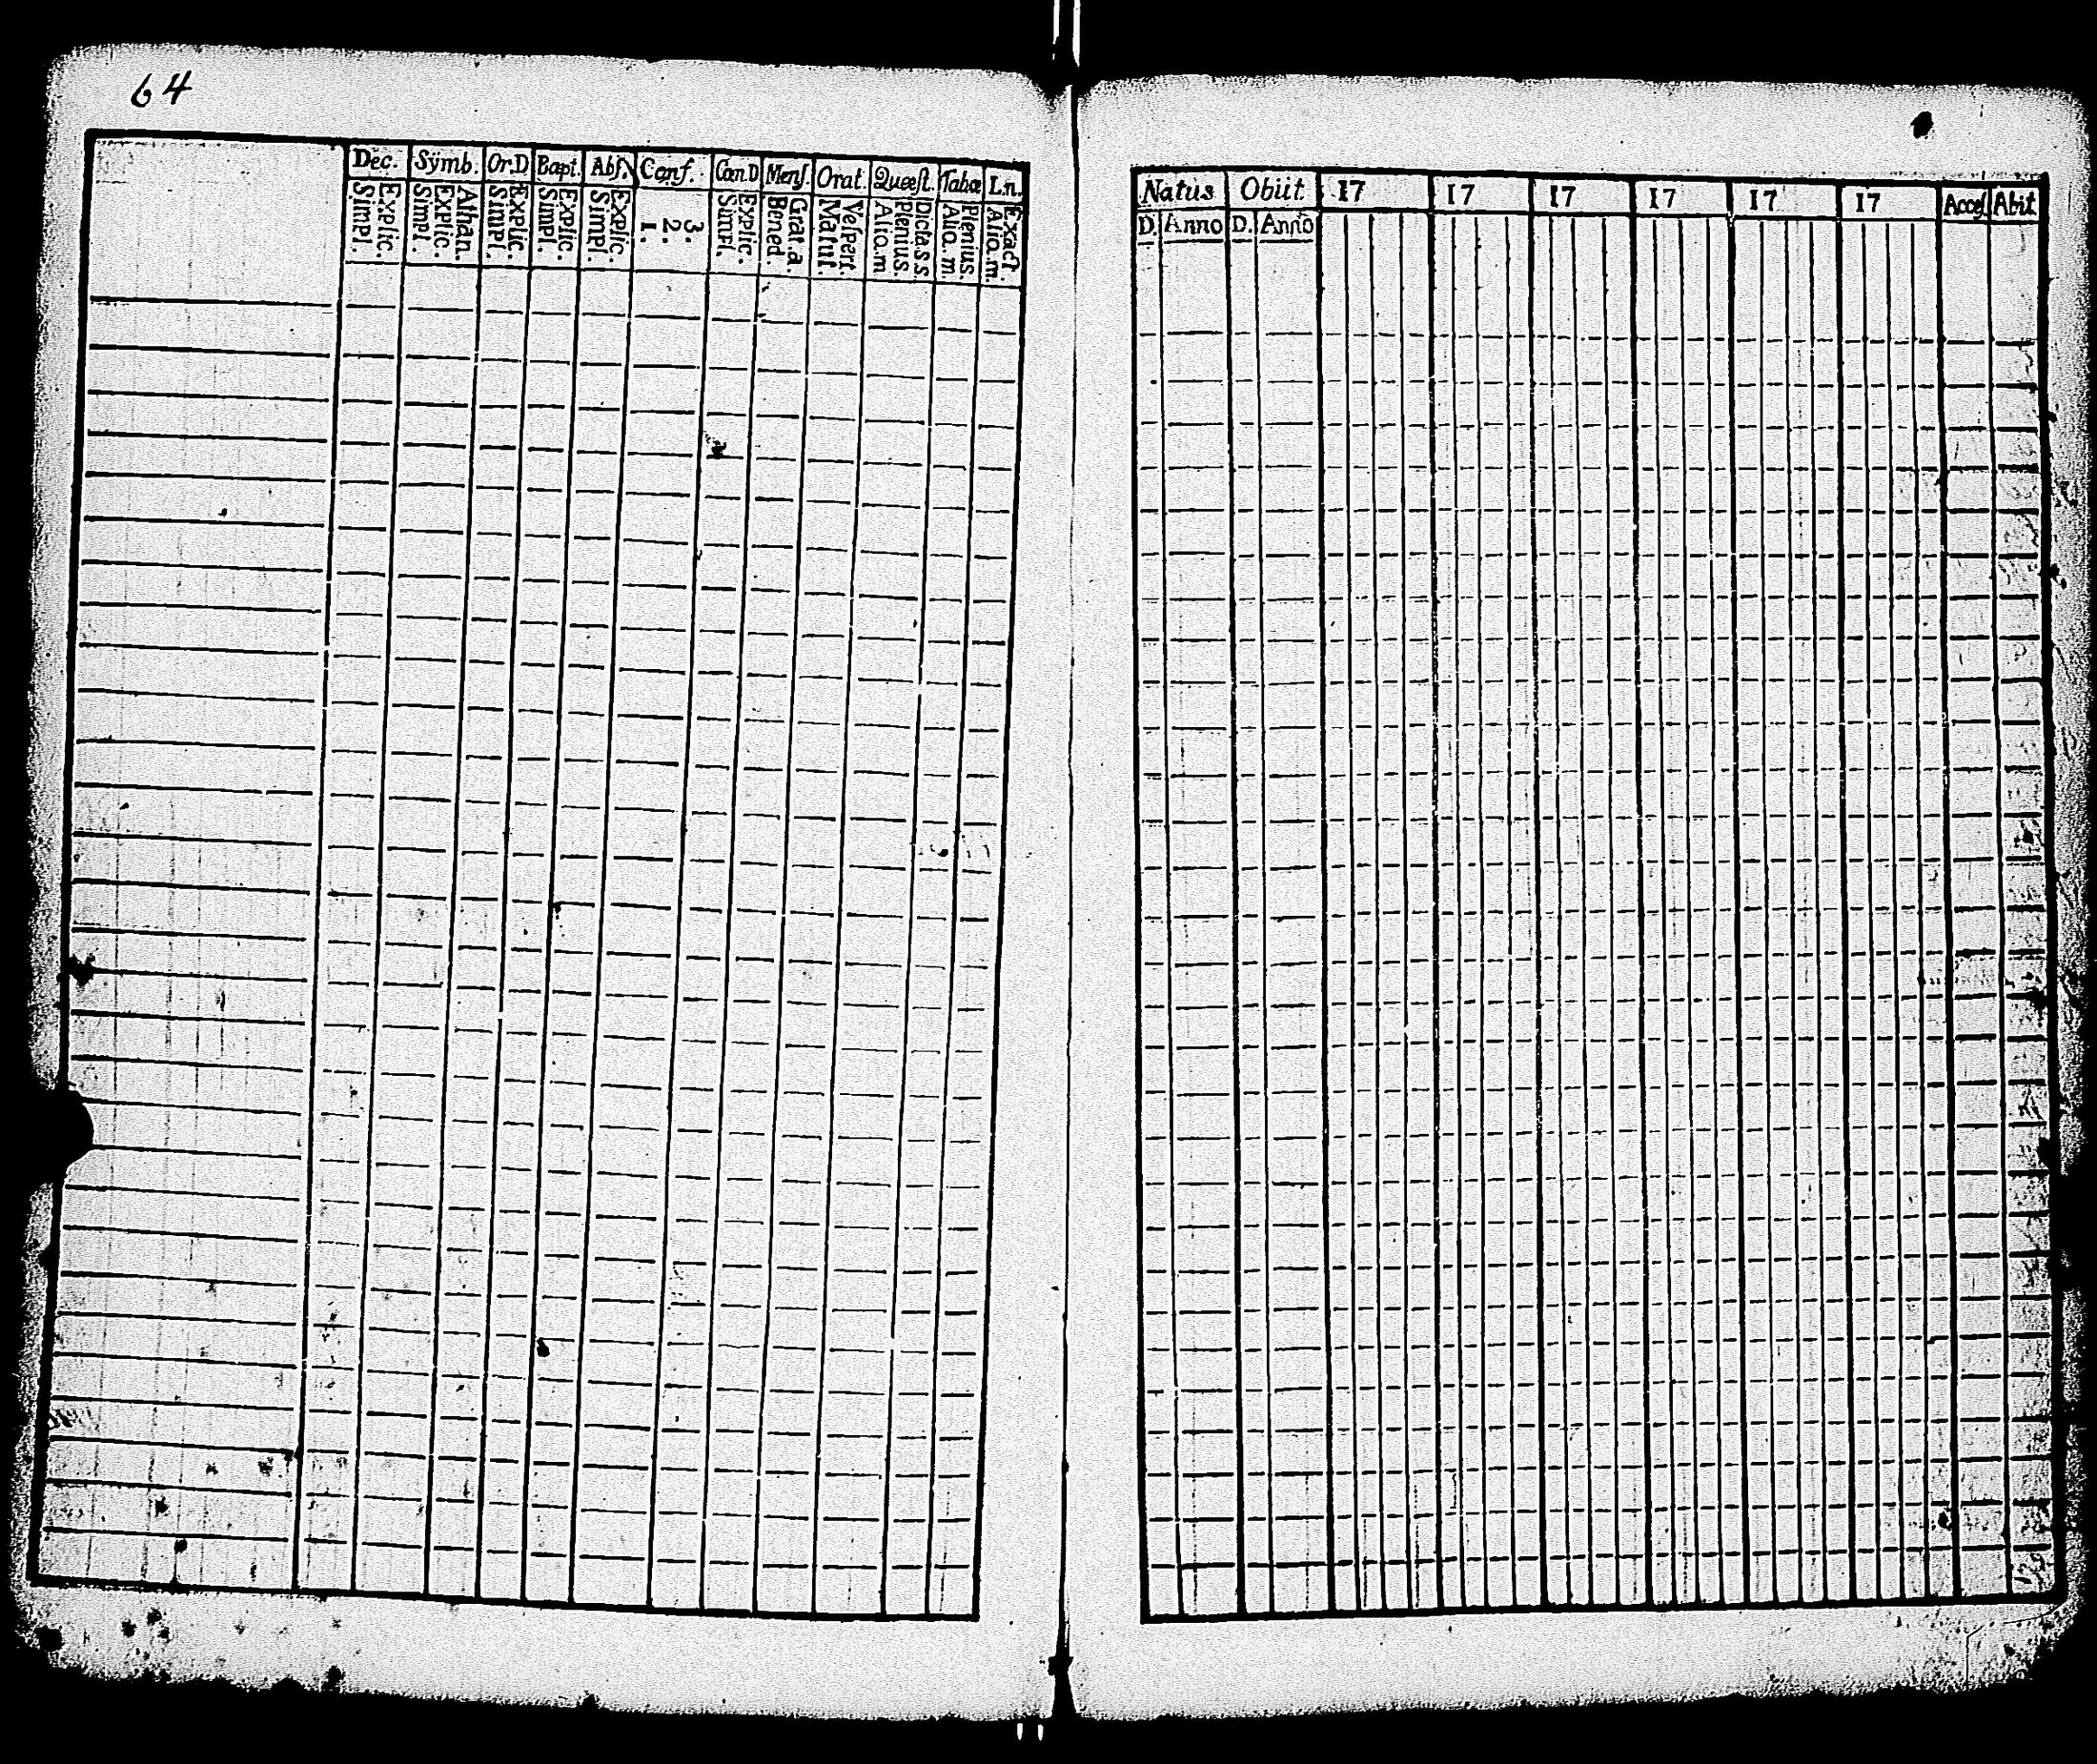 64
Dec. Sÿmb. Or.D Bapt. Abſ. Conf. Cœn.D Menſ. Orat. Quæſt. Tabœ L.n.
Explic. Simpl.
Athan. Explic. Simpl.
Explic. Simpl.
Explic. Simpl.
Explic. Simpl.
3. 2. 1.
Explic. Simpl.
Grat.a. Bened.
Veſpert. Matut.
Dicta.s.s. Plenius. Aliq.m
Plenius. Aliq.m.
Exact. Aliq.m.
Natus Obiit. 17 17 17 17 17 17 Acceſ Abit
D. Anno D. Anno